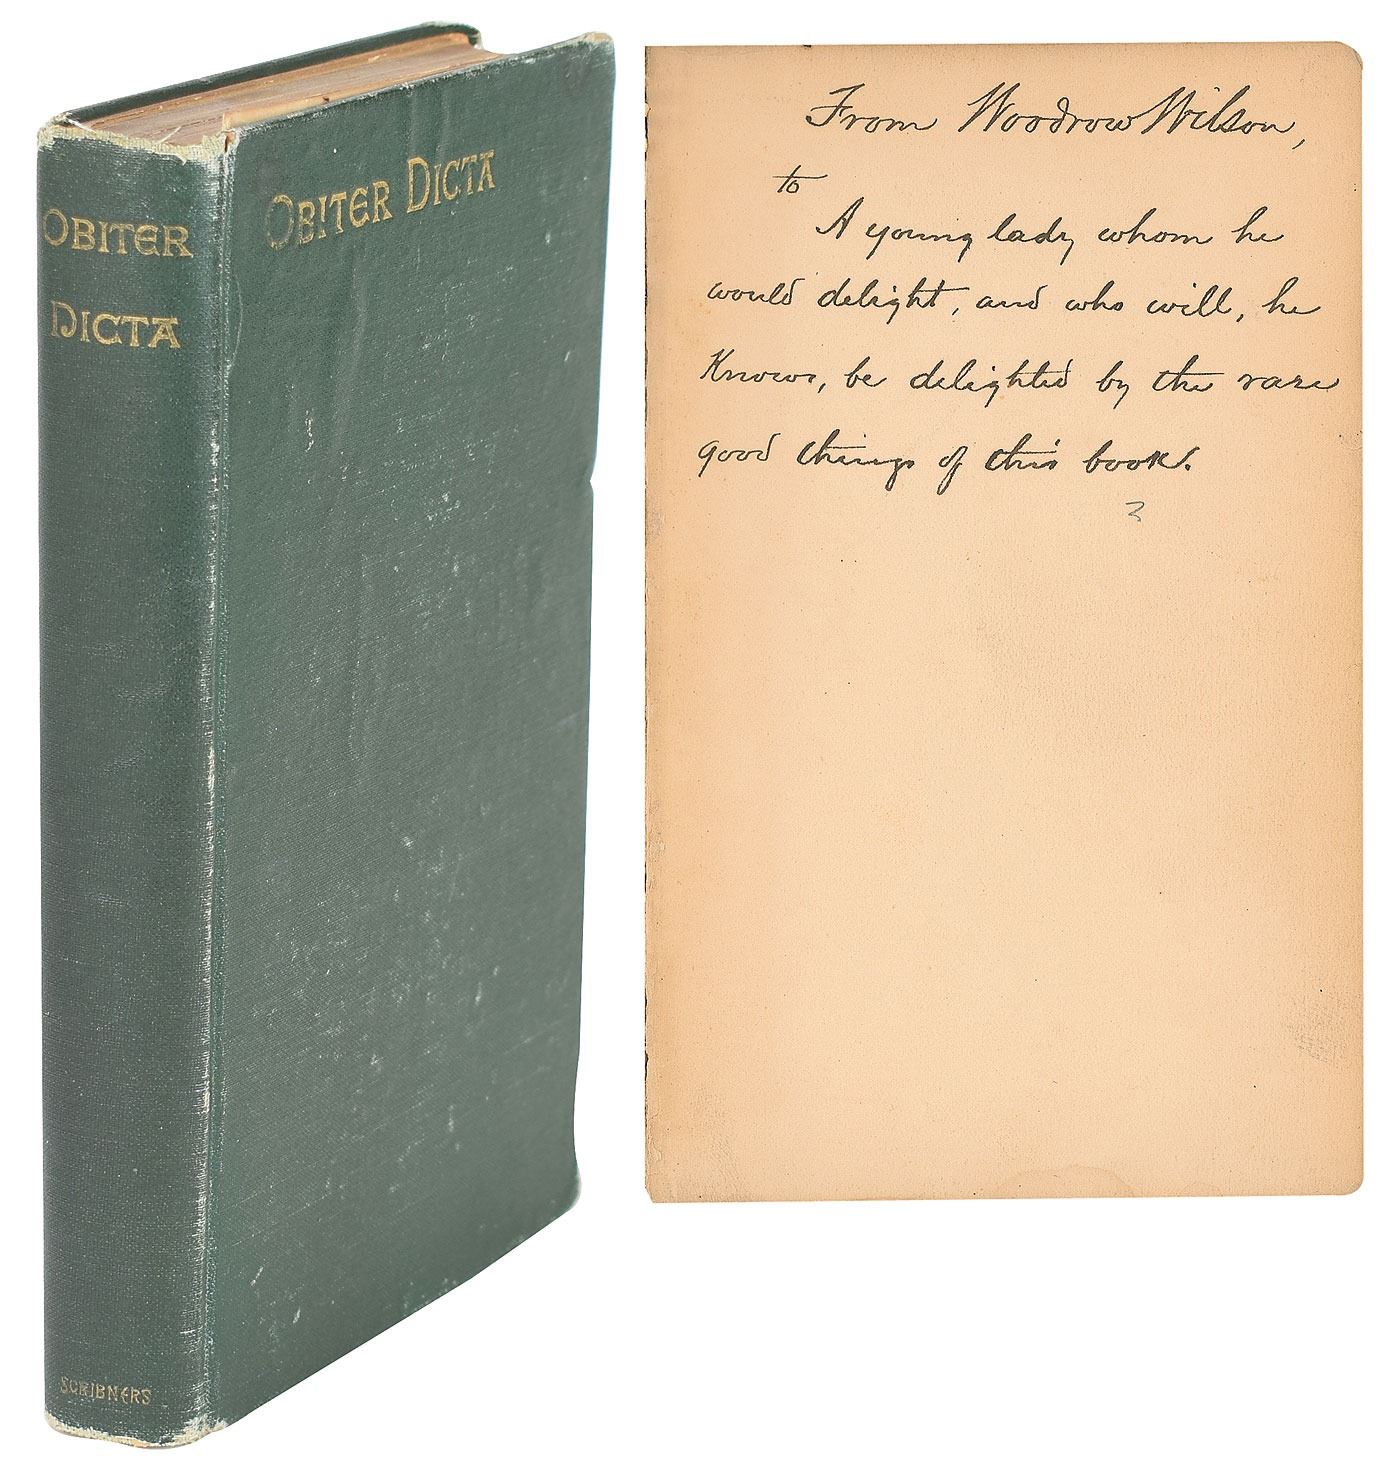 OBITER
DICTA
SCRIBNERS
OBITER DICTA
From Woodrow Wilson,
to
A young lady whom he
would delight, and who will, he
knows, be delighted by the rare
good things of this book.